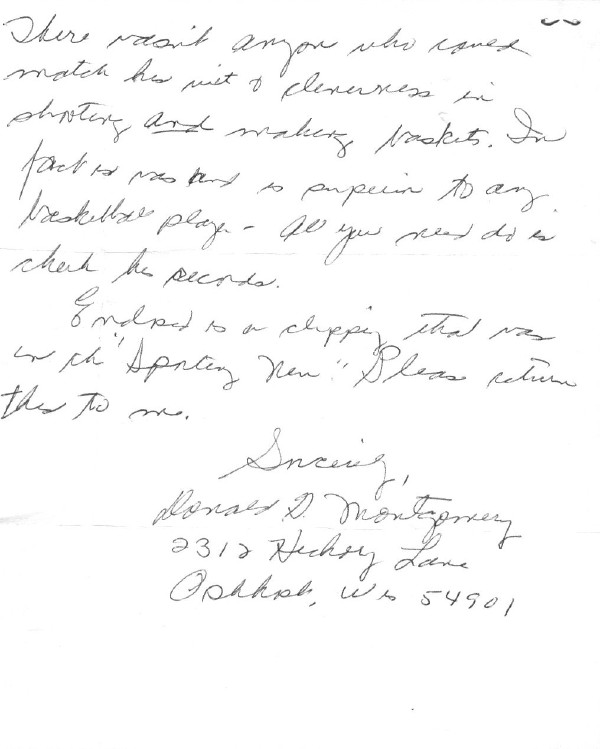 There wasn't anyone who could
match his wit & cleverness in
shooting and making baskets. In
fact is was and is superior to any
basketball player - All you need do is
check his records.
Enclosed is a clipping that was
in the "Sporting News." Please return
this to me.
Sincerely,
Donald D. Montgomery
2312 Hickory Lane
Oshkosh, Wis 54901